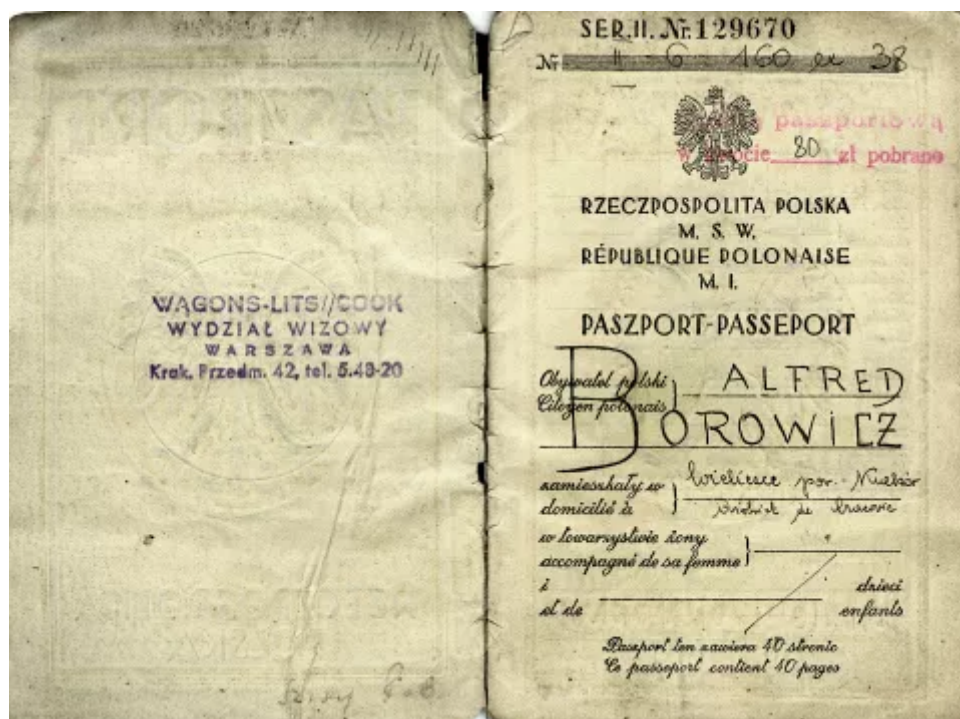 WAGONS-LITS//COOK
WYDZIAŁ WIZOWY
WARSZAWA
Krak. Przedm. 42, tel. 5.48-20
SER.II. Nr.129670
Nr II - 6 - 160 ex 38
paszportową
w kwocie 80 zł pobrano
RZECZPOSPOLITA POLSKA
M. S. W.
RÉPUBLIQUE POLONAISE
M. I.
PASZPORT-PASSEPORT
Obywatel polski } ALFRED
Citoyen polonais
BOROWICZ
zamieszkały w }
domicilié à
w towarzystwie żony }
accompagné de sa femme
i dzieci
et de enfants
Paszport ten zawiera 40 stronic
Ce passeport contient 40 pages